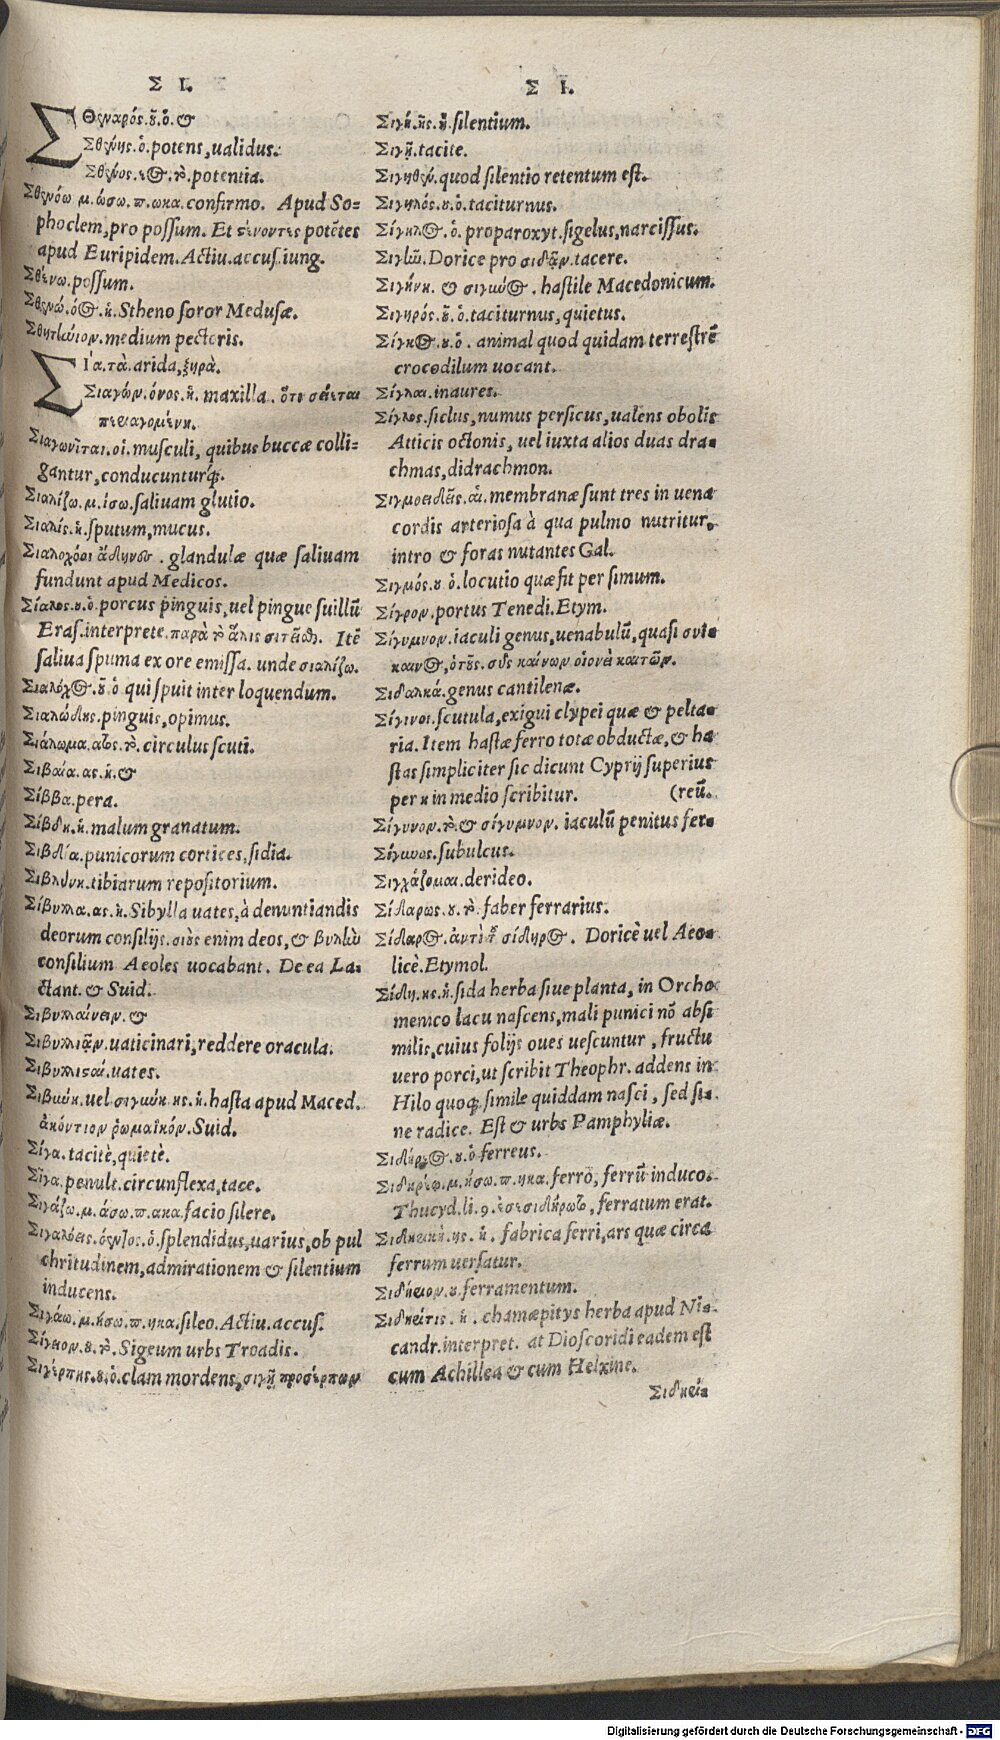 Σ Ι.
Σθεναρός.οῦ.ὁ.&
Σθένης.ὁ.potens,ualidus.
Σθένος.εος.τὸ.potentia.
Σθενόω.μ.ώσω.π.ωκα.confirmo. Apud So=
phoclem,pro possum. Et σένοντες potẽtes
apud Euripidem.Actiu.accus.iung.
Σθένω.possum.
Σθενώ.όος.ἡ.Stheno soror Medusæ.
medium pectoris.
Σία.τὰ.arida,ξηρὰ.
Σιαγών.όνος.ἡ. maxilla. ὅτι σείεται
Σιαγωνῖται.οἱ.musculi, quibus buccæ colli=
gantur,conducunturq́;.
Σιαλίζω.μ.ίσω.saliuam glutio.
Σιαλίς.ἡ.sputum,mucus.
Σιαλοχόοι ἀδένες. glandulæ quæ saliuam
fundunt apud Medicos.
Σίαλος.ου.ὁ.porcus pinguis,uel pingue suillũ
Eras.interprete.παρὰ τὸ ἅλις σιτεῖσθαι. Itẽ
saliua spuma ex ore emissa. unde σιαλίζω.
Σιαλόχος.ου.ὁ qui spuit inter loquendum.
Σιαλώδης.pinguis,opimus.
Σιάλωμα.ατος.τὸ.circulus scuti.
Σιβαία.ας.ἡ.&
Σίββα.pera.
Σίβδη.ἡ.malum granatum.
Σιβδία.punicorum cortices,sidia.
tibiarum repositorium.
Σίβυλλα.ας.ἡ.Sibylla uates,à denuntiandis
deorum consilijs.σιὸς enim deos,& βυλὼ
consilium Aeoles uocabant. De ea La=
ctant.& Suid.
Σιβυλλαίνειν.&
Σιβυλλιᾷν.uaticinari,reddere oracula.
Σιβυλλισταί.uates.
Σιβύνη.uel σιγύνη.ης.ἡ.hasta apud Maced.
ἀκόντιον ῥωμαϊκόν.Suid.
Σίγα.tacitè,quietè.
Σῖγα.penult.circunflexa,tace.
Σιγάζω.μ.άσω.π.ακα.facio silere.
Σιγαλόεις.όεντος.ὁ.splendidus,uarius,ob pul
chritudinem,admirationem & silentium
inducens.
Σιγάω.μ.ήσω.π.ηκα.sileo.Actiu.accus.
Σίγειον.ου.τὸ.Sigeum urbs Troadis.
Σιγέρπης.ου.ὁ.clam mordens,σιγῇ προσέρπων
Σ Ι.
Σιγή.ῆς.ἡ.silentium.
Σιγῇ.tacite.
Σιγηθέν.quod silentio retentum est.
Σιγηλός.ου.ὁ.taciturnus.
Σίγηλος.ὁ.proparoxyt.sigelus,narcissus.
Σιγῆν.Dorice pro σιγᾷν.tacere.
Σιγήνη. & σιγύνος. hastile Macedonicum.
Σιγηρός.οῦ.ὁ.taciturnus,quietus.
Σίγκος.ου.ὁ. animal quod quidam terrestrẽ
crocodilum uocant.
Σίγλαι.inaures.
Σίγλος.siclus,numus persicus,ualens obolis
Atticis octonis, uel iuxta alios duas dra=
chmas,didrachmon.
Σιγμοειδεῖς.αἱ.membranæ sunt tres in uena
cordis arteriosa à qua pulmo nutritur,
intro & foras nutantes Gal.
Σιγμός.ου.ὁ.locutio quæ fit per simum.
Σίγρον.portus Tenedi.Etym.
Σίγυμνον.iaculi genus,uenabulũ,quasi συΐ=
κανος,ὁ τοὺς σύας καίνων οἱονεὶ κατῶν.
Σιδαλκά.genus cantilenæ.
Σίγινοι.scutula,exigui clypei quæ & pelta=
ria.Item hastæ ferro totæ obductæ,& ha
stas simpliciter sic dicunt Cyprij superius
per κ in medio scribitur. (reũ.
Σίγυνον.τὸ.& σίγυμνον. iaculũ penitus fer=
subulcus.
Σιγχάζομαι.derideo.
Σίδαρως.ου.τὸ.faber ferrarius.
Σίδαρος.ἀντὶ τοῦ σίδηρος. Doricè uel Aeo=
licè.Etymol.
Σίδη.ης.ἡ.sida herba siue planta, in Orcho
menico lacu nascens,mali punici nõ absi
milis,cuius folijs oues uescuntur, fructu
uero porci,ut scribit Theophr. addens in
Hilo quoq; simile quiddam nasci, sed si=
ne radice. Est & urbs Pamphyliæ.
Σιδήρεος.ου.ὁ ferreus.
Σιδηρέω.μ.ήσω.π.ηκα.ferrõ, ferrũ induco.
Thucyd.li.9.ἐσεσιδήρωτο, ferratum erat.
Σιδηρική.ῆς.ἡ. fabrica ferri,ars quæ circa
ferrum uersatur.
Σιδήριον.ου.ferramentum.
Σιδηρῖτις. ἡ. chamæpitys herba apud Ni=
candr.interpret. at Dioscoridi eadem est
cum Achillea & cum Helxine.
Σιδηεί=
Digitalisierung gefördert durch die Deutsche Forschungsgemeinschaft - DFG